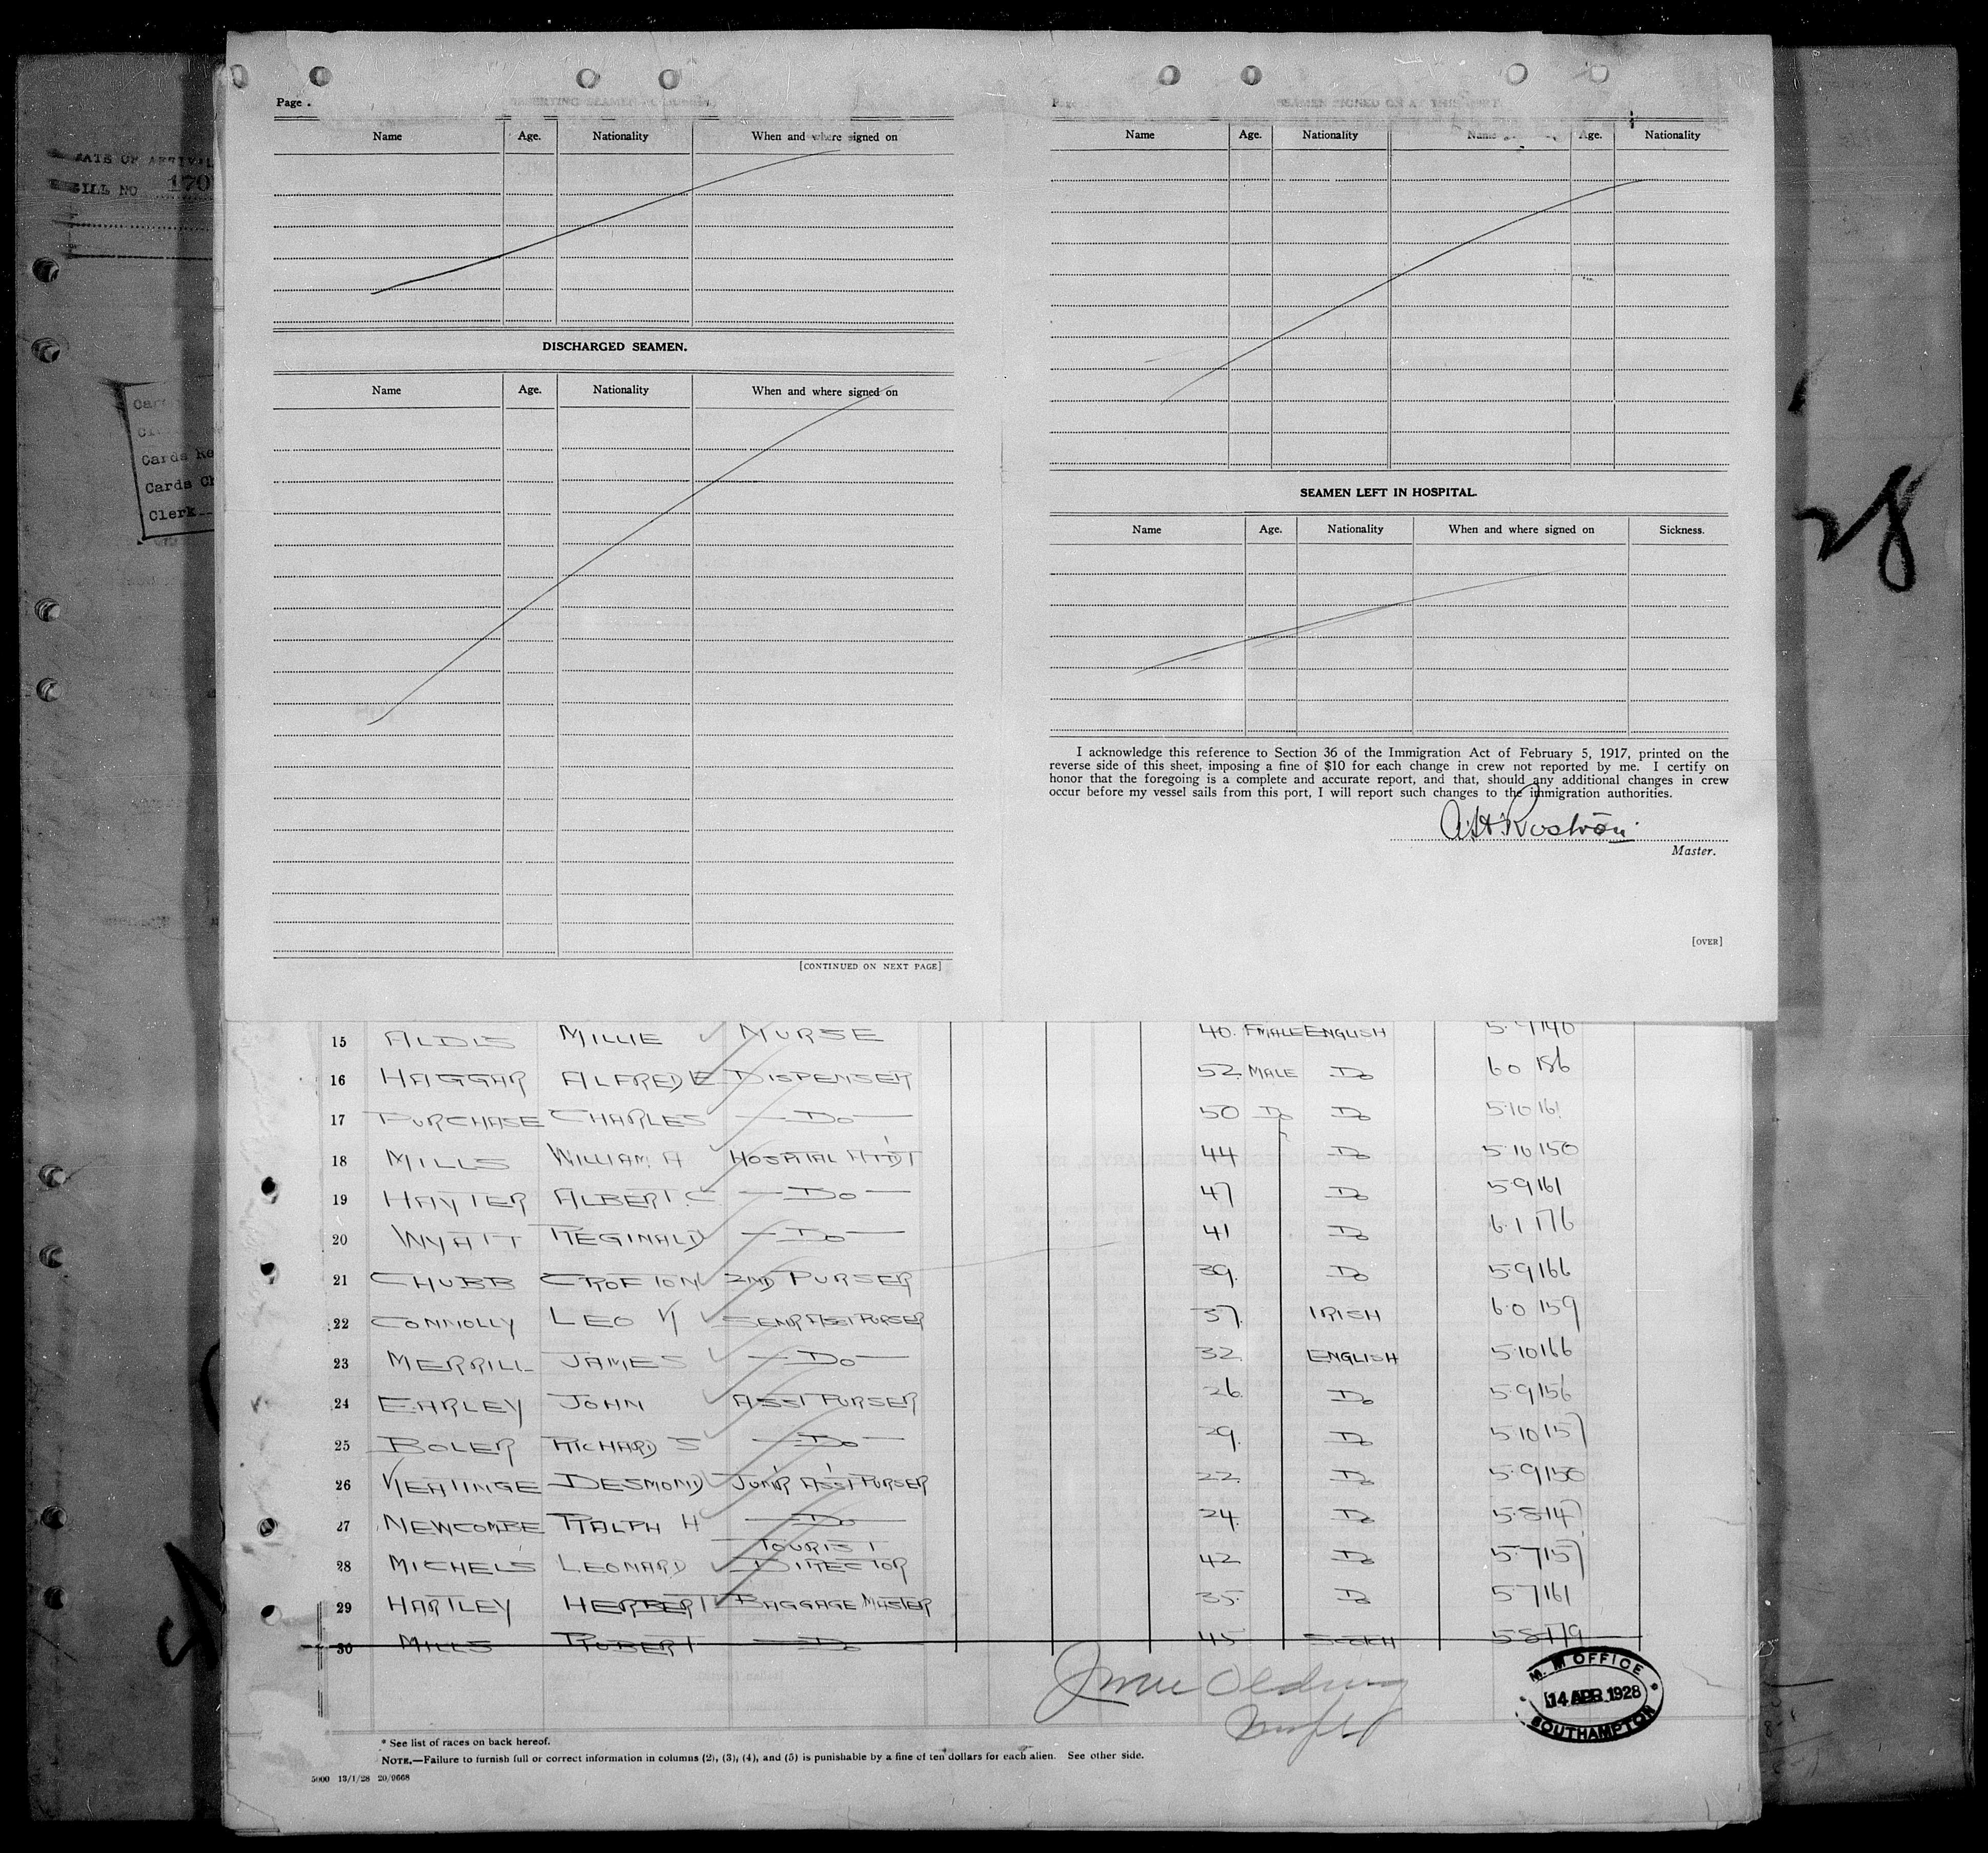 DATE OF ARRIVAL
BILL NO 170
Cards Re
Cards Ch
Clerk
Page
DESERTING SEAMEN
Name Age. Nationality When and where signed on
DISCHARGED SEAMEN.
Name Age. Nationality When and where signed on
[CONTINUED ON NEXT PAGE]
Page
SEAMEN SIGNED ON AT THIS PORT
Name Age. Nationality Name Age. Nationality
SEAMEN LEFT IN HOSPITAL.
Name Age. Nationality When and where signed on Sickness.
I acknowledge this reference to Section 36 of the Immigration Act of February 5, 1917, printed on the
reverse side of this sheet, imposing a fine of $10 for each change in crew not reported by me. I certify on
honor that the foregoing is a complete and accurate report, and that, should any additional changes in crew
occur before my vessel sails from this port, I will report such changes to the immigration authorities.
A.H. Rostron
Master.
[OVER]
28
15 ALDIS MILLIE NURSE 40. FMALE ENGLISH 5.7 140
16 HAGGAR ALFRED E DISPENSER 52. MALE Do 6.0 186
17 PURCHASE CHARLES Do 50 Do Do 5.10 161
18 MILLS WILLIAM. A HOSPITAL ATTD'T 44 Do 5.10 150
19 HAYTER ALBERT. C Do 47 Do 5.9 161
20 WYATT REGINALD Do 41 Do 6.1 176
21 CHUBB CROFTON 2ND PURSER 39. Do 5.9 166
22 CONNOLLY LEO V SENR ASST PURSER 37. IRISH 6.0 159
23 MERRILL JAMES Do 32. ENGLISH 5.10 166
24 EARLEY JOHN ASST PURSER 26. Do 5.9 156
25 BOLER RICHARD S Do 29. Do 5.10 157
26 KEATINGE DESMOND JUN'R ASS'T PURSER 22. Do 5.9 150
27 NEWCOMBE RALPH H Do 24. Do 5.8 147
TOURIST
28 MICHELS LEONARD DIRECTOR 42 Do 5.7 157
29 HARTLEY HERBERT BAGGAGE MASTER 35. Do 5.7 161
30 MILLS ROBERT Do 45 SCOTCH 5.8 179
M. M OFFICE
14 APR 1928
SOUTHAMPTON
* See list of races on back hereof.
NOTE.—Failure to furnish full or correct information in columns (2), (3), (4), and (5) is punishable by a fine of ten dollars for each alien. See other side.
5000 13/1/28 20/9668